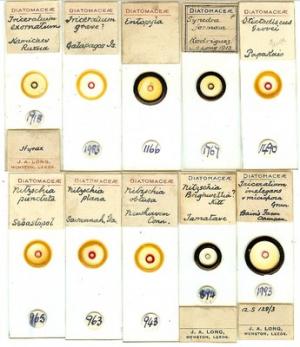 DIATOMACEÆ
Triceratium
exornatum
Kamischev
Russia
1918
Hyrax
J. A. LONG,
WENSTON, LEEDS.
DIATOMACEÆ
Triceratium
grave?
Galapagos Is.
DIATOMACEÆ
Entopyla
1166
DIATOMACEÆ
Synedra
formosa
Rodriguez
1767
DIATOMACEÆ
Stictodiscus
Grovei
Papakaio
1490
DIATOMACEÆ
Nitzschia
punctata
Sebastopol
965
DIATOMACEÆ
Nitzschia
plana
Savannah, Ga
963
DIATOMACEÆ
Nitzschia
obtusa
Newhaven
Conn.
943
DIATOMACEÆ
Nitzschia
Brightwellii?
Kitt
Tamatave
894
J. A. LONG,
WENSTON, LEEDS.
DIATOMACEÆ
Triceratium
inelegans
v micropora
Grun
Bain's Farm
Oamaru
1993
J. A. LONG,
WENSTON, LEEDS.